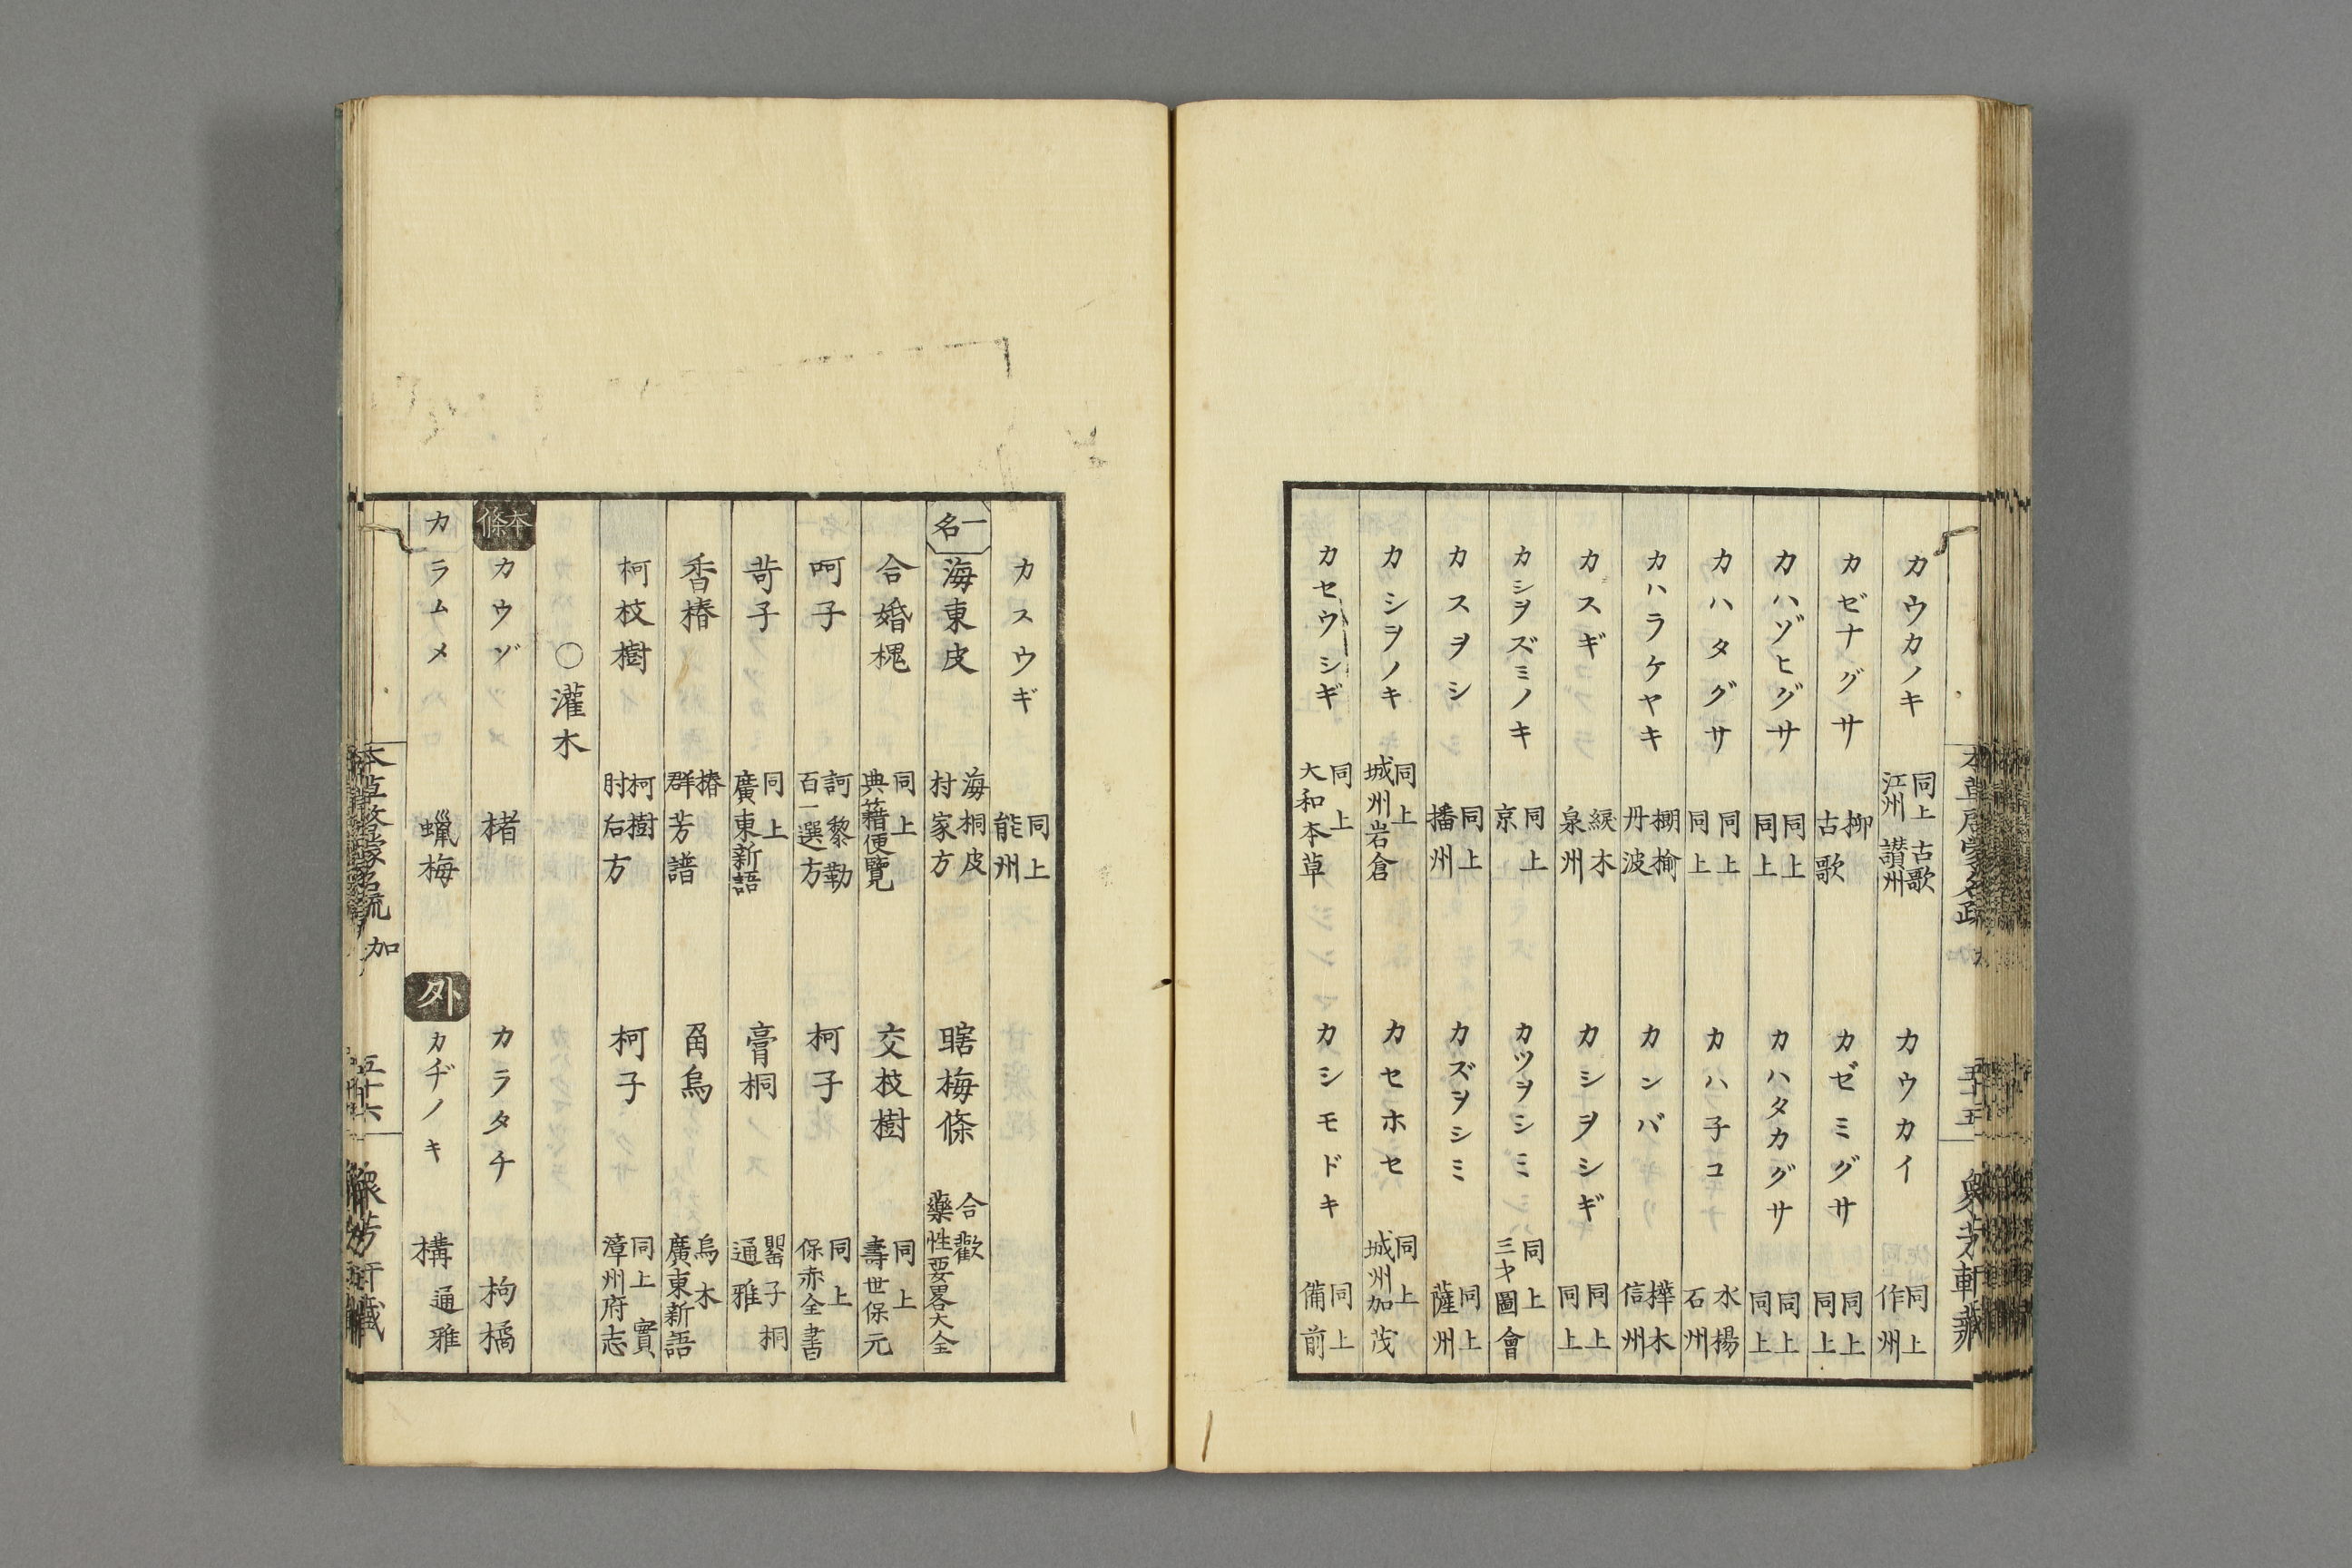 カウカノキ 同上 古歌 江州 讃州 カウカイ 同上 作州
カゼナグサ 柳 古歌 カゼミグサ 同上 同上
カハゾヒグサ 同上 同上 カハタカグサ 同上 同上
カハタグサ 同上 同上 カハ子コ 水楊 石州
カハラケヤキ 棚楡 丹波 カンバ 樺木 信州
カスギ 綟木 泉州 カシヲシギ 同上 同上
カシヲズミノキ 同上 京 カツヲシミ 同上 三才圖會
カスヲシ 同上 播州 カズヲシミ 同上 薩州
カシヲノキ 同上 城州岩倉 カセホセ 同上 城州加茂
カセウシギ 同上 大和本草 カシモドキ 同上 備前
カスウギ 同上 能州
一名 海東皮 海桐皮 村家方 瞎梅條 合歡 藥性要畧大全
合婚槐 同上 典籍便覽 交枝樹 同上 壽世保元
呵子 訶黎勒 百一選方 柯子 同上 保赤全書
苛子 同上 廣東新語 膏桐 罌子桐 通雅
香椿 椿 群芳譜 角烏 烏木 廣東新語
柯枝樹 柯樹 肘后方 柯子 同上 實 漳州府志
〇灌木
本條 カウゾ 楮 カラタチ 枸橘
カラムメ 蠟梅 外 カヂノキ 構 通雅
本草啓蒙名疏 加 五十六 衆芳軒藏